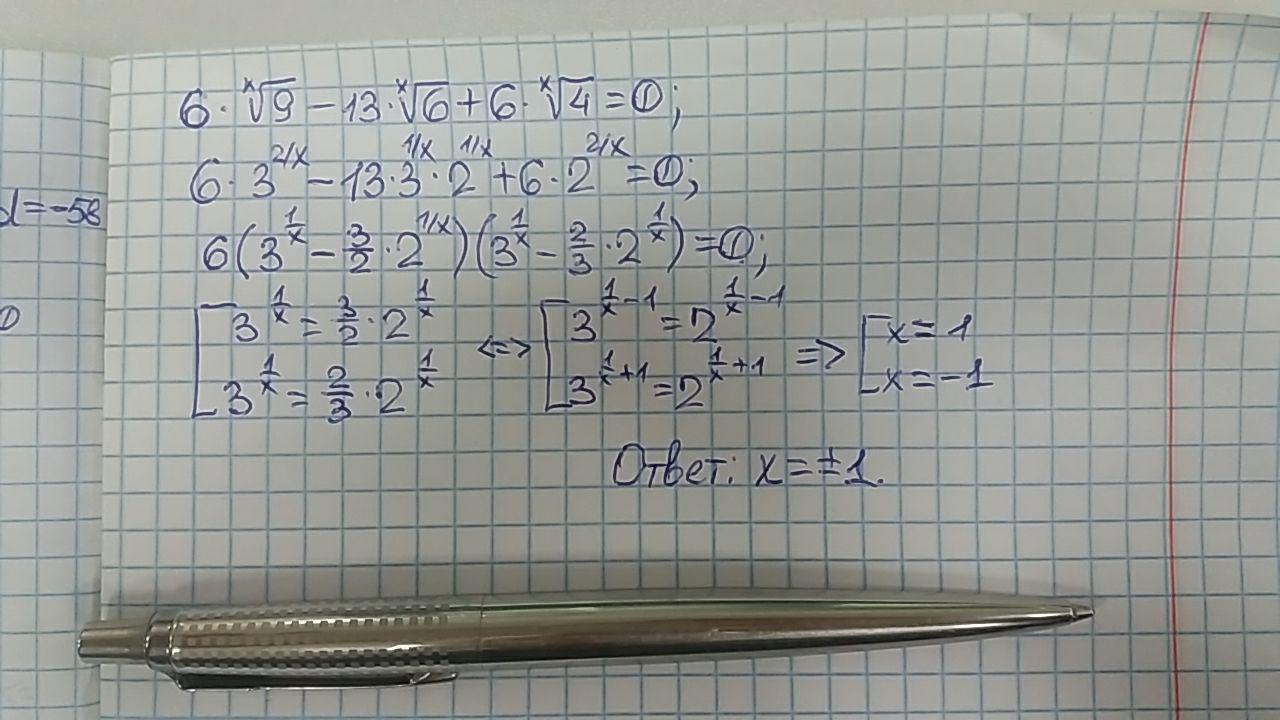 6·ˣ√9 − 13·ˣ√6 + 6·ˣ√4 = 0;
6·3^(2/x) − 13·3^(1/x)·2^(1/x) + 6·2^(2/x) = 0;
d=-58
6(3^(1/x) − 3/2·2^(1/x))(3^(1/x) − 2/3·2^(1/x)) = 0;
[3^(1/x) = 3/2·2^(1/x) <=> [3^(1/x−1) = 2^(1/x−1) => [x = 1
3^(1/x) = 2/3·2^(1/x) 3^(1/x+1) = 2^(1/x+1) x = −1
Ответ: x = ±1.